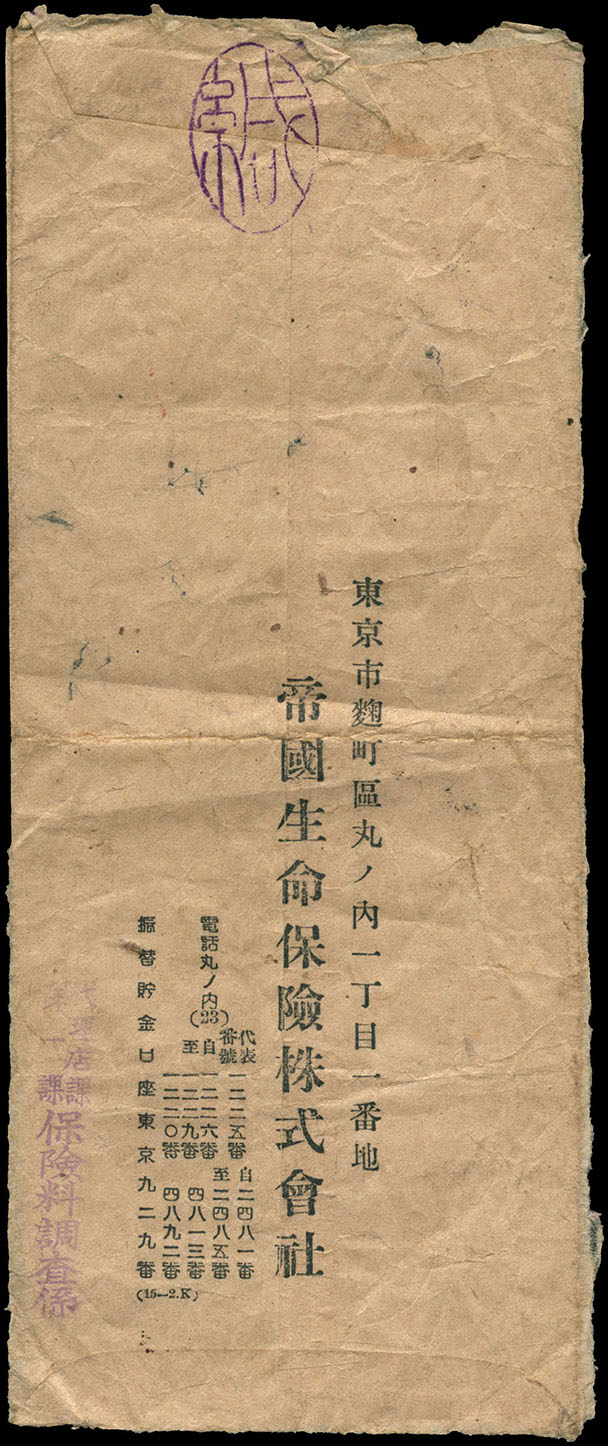 緘
東京市麴町區丸ノ內一丁目一番地
帝國生命保險株式會社
電話丸ノ內(23)
代表番號 一二二五番
自一二二六番
至一二二九番
一二二〇番
自二四八一番
至二四八五番
四八一三番
四八九二番
振替貯金口座東京九二九番
(15—2.K)
代理店課
第一課
保險料調査係